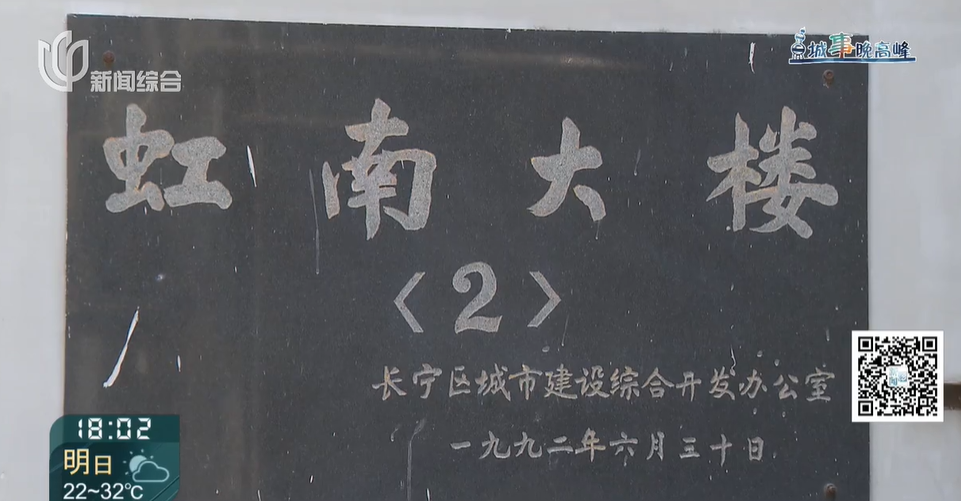 新闻综合
城事晚高峰
虹南大楼
〈2〉
长宁区城市建设综合开发办公室
一九九二年六月三十日
18:02
明日
22~32℃